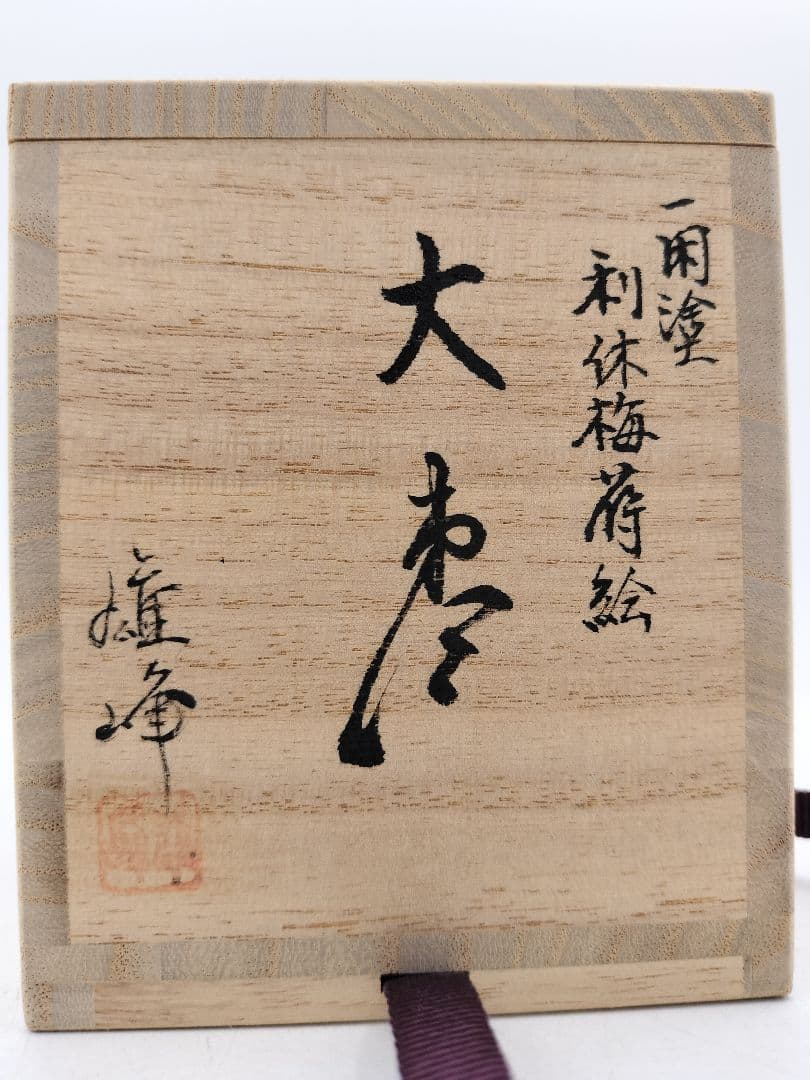 一閑塗
利休梅蒔絵
大棗
雄峰